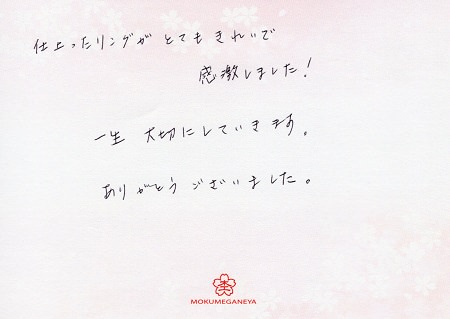 仕上ったリングが とても きれいで
感激しました!
一生 大切にしていきます。
ありがとうございました。
MOKUMEGANEYA